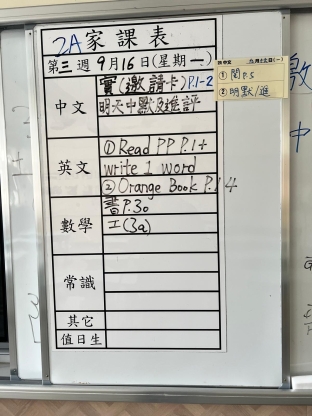 2A 家課表
第三週 9月16日(星期一)
中文
實(邀請卡)P.1-2
明天中默及進評
英文
① Read PP P.1+
write 1 word
② Orange Book P.14
數學
書P.30
工(3a)
常識
其它
值日生
① 閱P.5
② 明默/進
邀
中